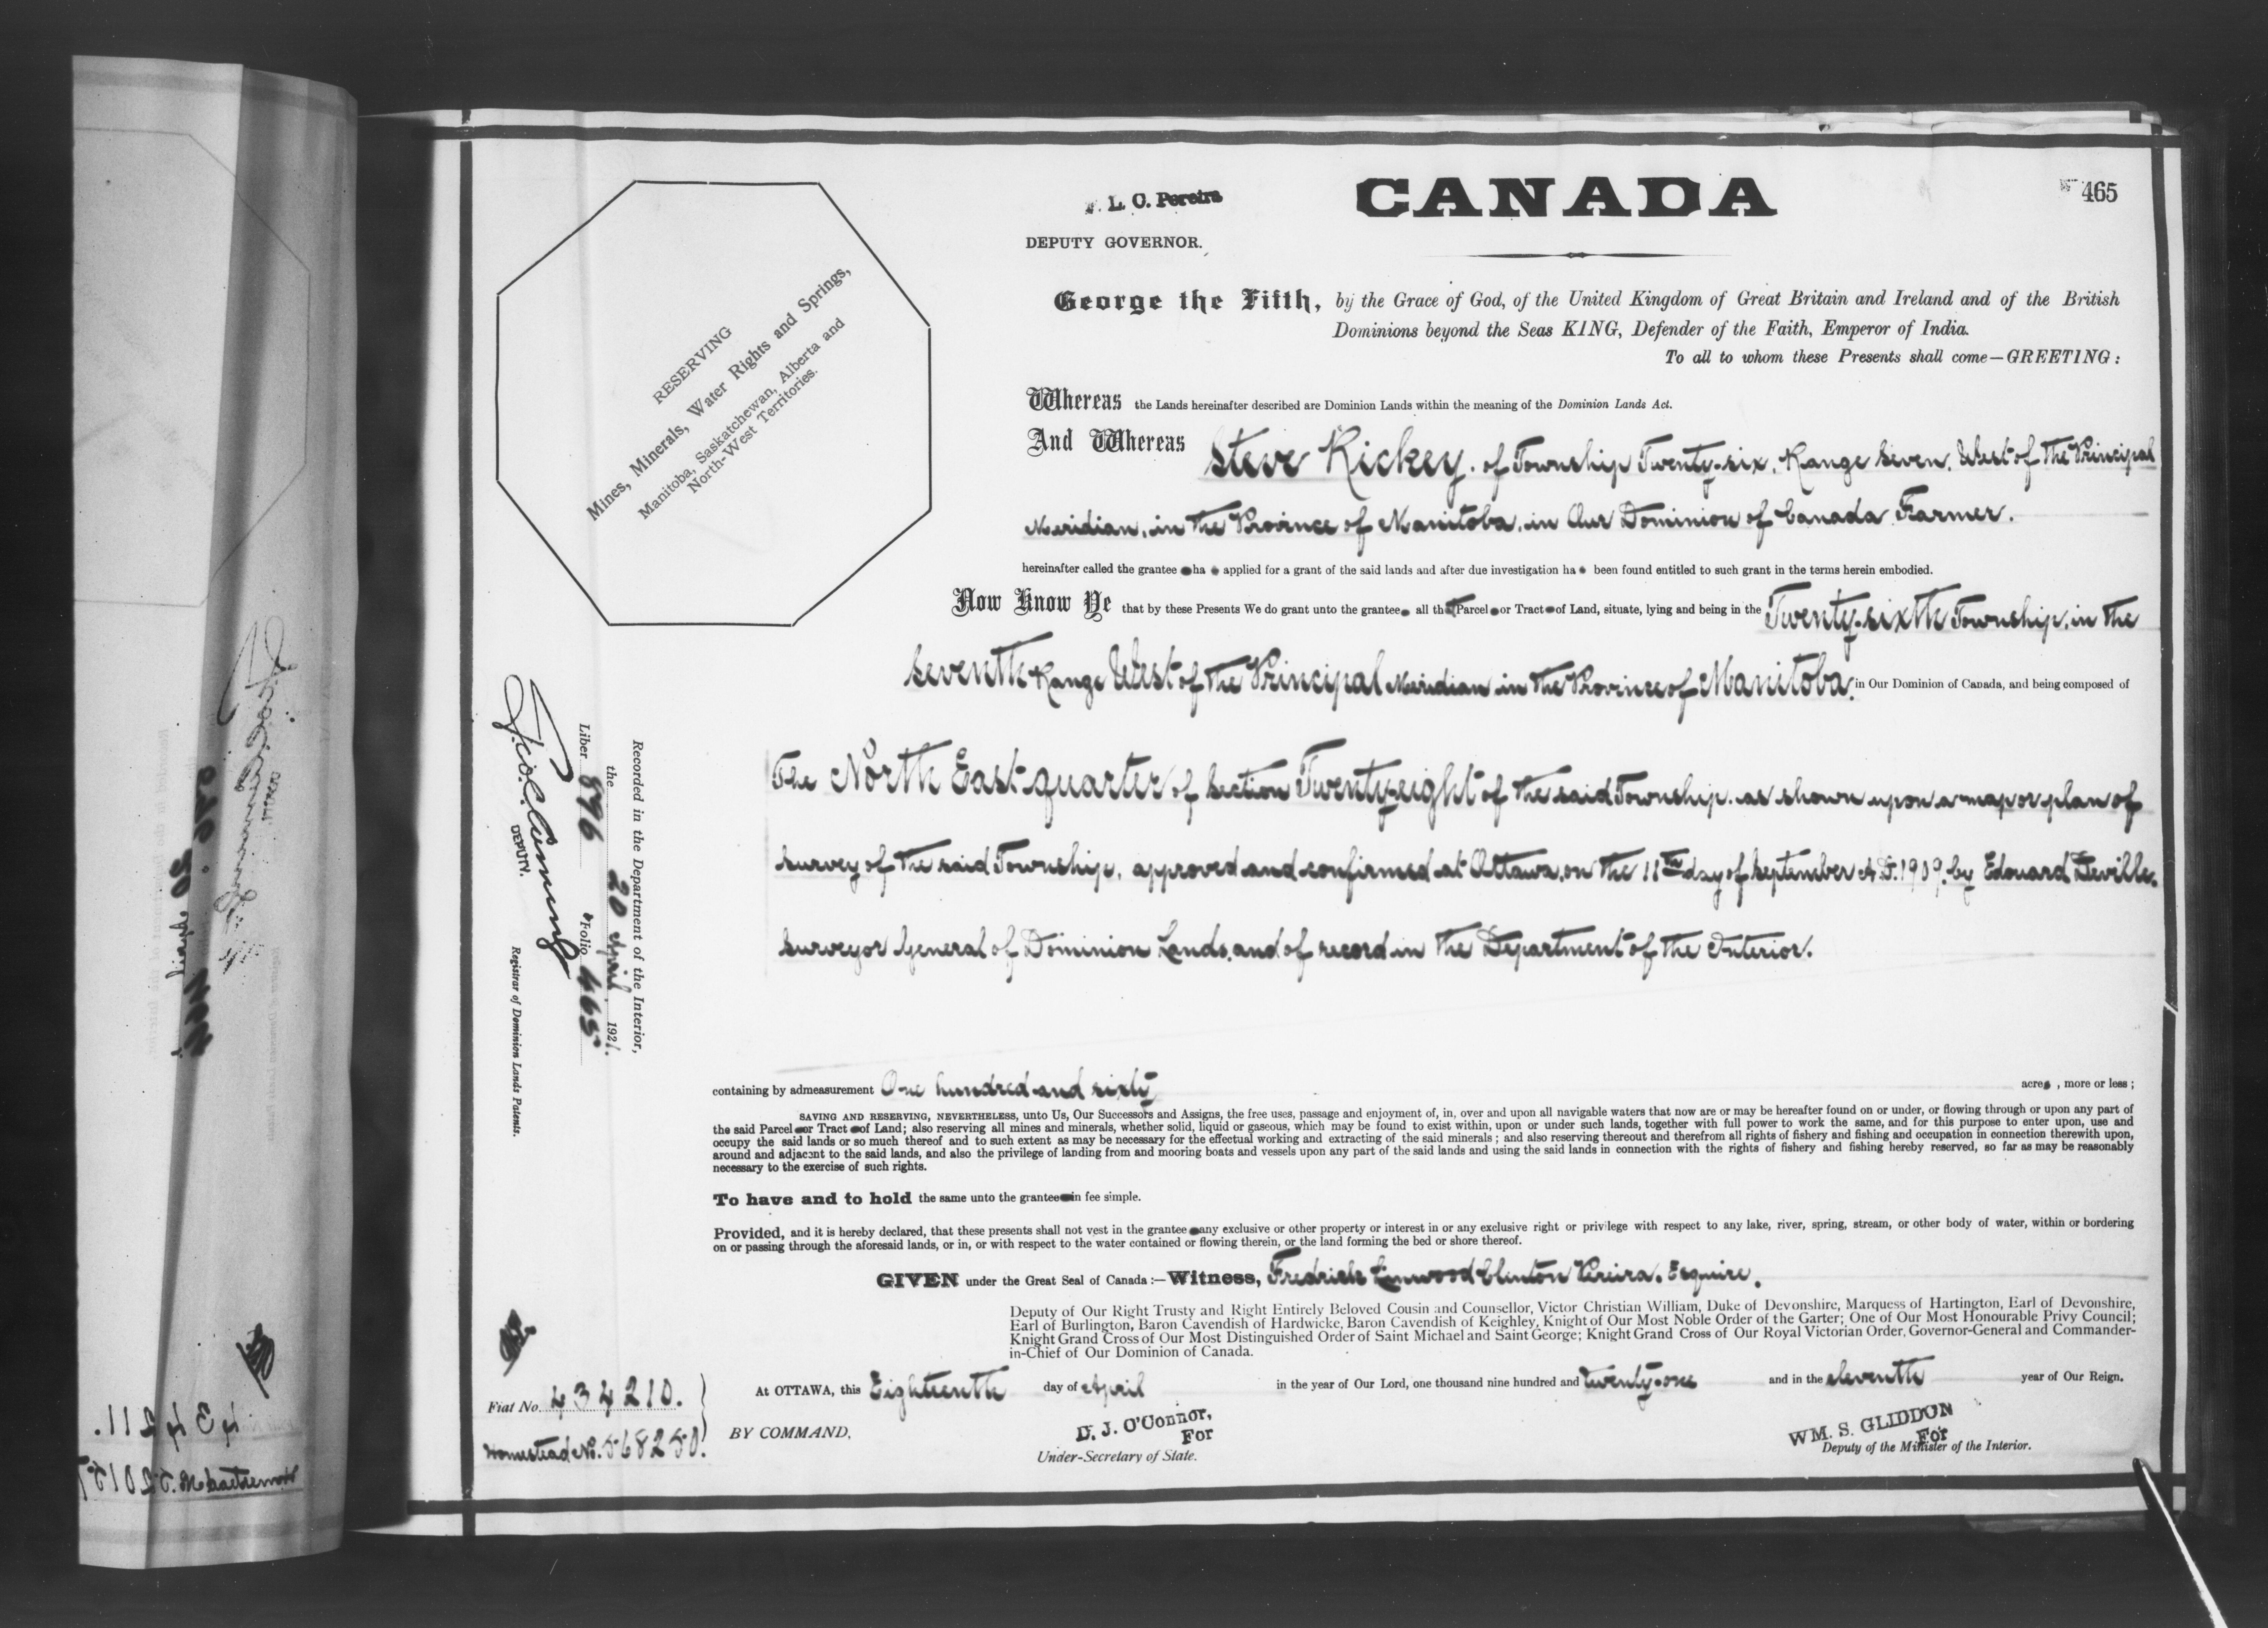 F. L. C. Pereira
DEPUTY GOVERNOR.
CANADA
465
George the Fifth, by the Grace of God, of the United Kingdom of Great Britain and Ireland and of the British
Dominions beyond the Seas KING, Defender of the Faith, Emperor of India.
To all to whom these Presents shall come—GREETING:
RESERVING
Mines, Minerals, Water Rights and Springs,
Manitoba, Saskatchewan, Alberta and
North-West Territories.
Whereas the Lands hereinafter described are Dominion Lands within the meaning of the Dominion Lands Act.
And Whereas Steve Rickey. of Township Twenty-six, Range Seven, West of the Principal
Meridian, in the Province of Manitoba, in Our Dominion of Canada Farmer.
hereinafter called the grantee ha applied for a grant of the said lands and after due investigation ha been found entitled to such grant in the terms herein embodied.
Now Know Ye that by these Presents We do grant unto the grantee all that Parcel or Tract of Land, situate, lying and being in the Twenty-sixth Township, in the
Seventh Range West of the Principal Meridian in the Province of Manitoba. in Our Dominion of Canada, and being composed of
The North East quarter of Section Twenty-eight of the said Township. as shown upon a map or plan of
survey of the said Township, approved and confirmed at Ottawa, on the 11th day of September A.D. 1909, by Edouard Deville,
Surveyor General of Dominion Lands, and of record in the Department of the Interior.
Recorded in the Department of the Interior,
the 20 April 1921.
Liber 896 Folio 465
DEPUTY.
Registrar of Dominion Lands Patents.
containing by admeasurement One hundred and sixty acres , more or less ;
SAVING AND RESERVING, NEVERTHELESS, unto Us, Our Successors and Assigns, the free uses, passage and enjoyment of, in, over and upon all navigable waters that now are or may be hereafter found on or under, or flowing through or upon any part of
the said Parcel or Tract of Land; also reserving all mines and minerals, whether solid, liquid or gaseous, which may be found to exist within, upon or under such lands, together with full power to work the same, and for this purpose to enter upon, use and
occupy the said lands or so much thereof and to such extent as may be necessary for the effectual working and extracting of the said minerals ; and also reserving thereout and therefrom all rights of fishery and fishing and occupation in connection therewith upon,
around and adjacent to the said lands, and also the privilege of landing from and mooring boats and vessels upon any part of the said lands and using the said lands in connection with the rights of fishery and fishing hereby reserved, so far as may be reasonably
necessary to the exercise of such rights.
To have and to hold the same unto the grantee in fee simple.
Provided, and it is hereby declared, that these presents shall not vest in the grantee any exclusive or other property or interest in or any exclusive right or privilege with respect to any lake, river, spring, stream, or other body of water, within or bordering
on or passing through the aforesaid lands, or in, or with respect to the water contained or flowing therein, or the land forming the bed or shore thereof.
GIVEN under the Great Seal of Canada :— Witness, Fredrick Linwood Clinton Pereira, Esquire,
Deputy of Our Right Trusty and Right Entirely Beloved Cousin and Counsellor, Victor Christian William, Duke of Devonshire, Marquess of Hartington, Earl of Devonshire,
Earl of Burlington, Baron Cavendish of Hardwicke, Baron Cavendish of Keighley, Knight of Our Most Noble Order of the Garter; One of Our Most Honourable Privy Council;
Knight Grand Cross of Our Most Distinguished Order of Saint Michael and Saint George; Knight Grand Cross of Our Royal Victorian Order, Governor-General and Commander-
in-Chief of Our Dominion of Canada.
At OTTAWA, this Eighteenth day of April in the year of Our Lord, one thousand nine hundred and twenty-one and in the eleventh year of Our Reign.
Fiat No. 434210.
Homestead No. 568250.
BY COMMAND,
D. J. O'Connor,
For
Under-Secretary of State.
WM. S. GLIDDON
For
Deputy of the Minister of the Interior.